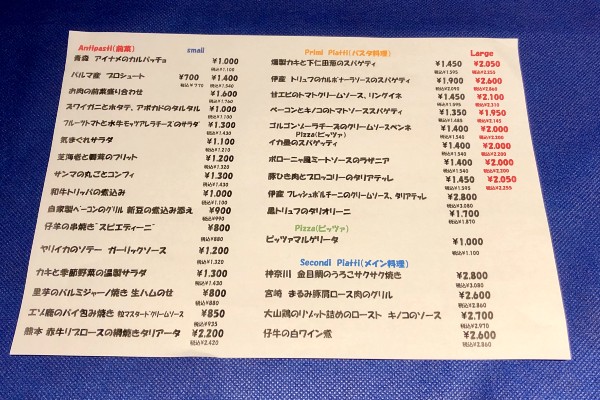 Antipasti(前菜) small
青森 アイナメのカルパッチョ ¥1.000
税込¥1.100
パルマ産 プロシュート ¥700 ¥1.400
税込¥770 税込¥1.540
お肉の前菜盛り合わせ ¥1.600
税込¥1.760
スワイガニとホタテ、アボカドのタルタル ¥1.000
税込¥1.100
フルーツトマトと水牛モッツァレラチーズのサラダ ¥1.300
税込¥1.430
気まぐれサラダ ¥1.100
税込¥1.210
芝海老と蓴菜のフリット ¥1.200
税込¥1.320
サンマの丸ごとコンフィ ¥1.300
税込¥1.430
和牛トリッパの煮込み ¥1.000
税込¥1.100
自家製ベーコンのグリル 新豆の煮込み添え ¥900
税込¥990
仔羊の串焼き"スピエディーニ" ¥800
税込¥880
ヤリイカのソテー ガーリックソース ¥1.200
税込¥1.320
カキと季節野菜の温製サラダ ¥1.300
税込¥1.430
里芋のパルミジャーノ焼き 生ハムのせ ¥800
税込¥880
エゾ鹿のパイ包み焼き 粒マスタードクリームソース ¥850
税込¥935
熊本 赤牛リブロースの網焼きタリアータ ¥2.200
税込¥2.420
Primi Piatti(パスタ料理) Large
燻製カキと下仁田葱のスパゲティ ¥1.450 ¥2.050
税込¥1.595 税込¥2.255
伊産 トリュフのカルボナーラソースのスパゲティ ¥1.900 ¥2.600
税込¥2.090 税込¥2.860
甘エビのトマトクリームソース、リングイネ ¥1.450 ¥2.100
税込¥1.595 税込¥2.310
ベーコンとキノコのトマトソーススパゲティ ¥1.350 ¥1.950
税込¥1.485 税込¥2.145
ゴルゴンゾーラチーズのクリームソースペンネ ¥1.400 ¥2.000
Pizza(ピッツァ) 税込¥1.540 税込¥2.200
イカ墨のスパゲティ ¥1.400 ¥2.000
税込¥1.540 税込¥2.200
ボローニャ風ミートソースのラザニア ¥1.400 ¥2.000
税込¥1.540 税込¥2.200
豚ひき肉とブロッコリーのタリアテッレ ¥1.450 ¥2.050
税込¥1.595 税込¥2.255
伊産 フレッシュポルチーニのクリームソース、タリアテッレ ¥2.800
税込¥3.080
黒トリュフのタリオリーニ ¥1.700
税込¥1.870
Pizza(ピッツァ)
ピッツァマルゲリータ ¥1.000
税込¥1.100
Secondi Piatti(メイン料理)
神奈川 金目鯛のうろこサクサク焼き ¥2.800
税込¥3.080
宮崎 まるみ豚肩ロース肉のグリル ¥2.600
税込¥2.860
大山鶏のリゾット詰めのロースト キノコのソース ¥2.700
税込¥2.970
仔牛の白ワイン煮 ¥2.600
税込¥2.860